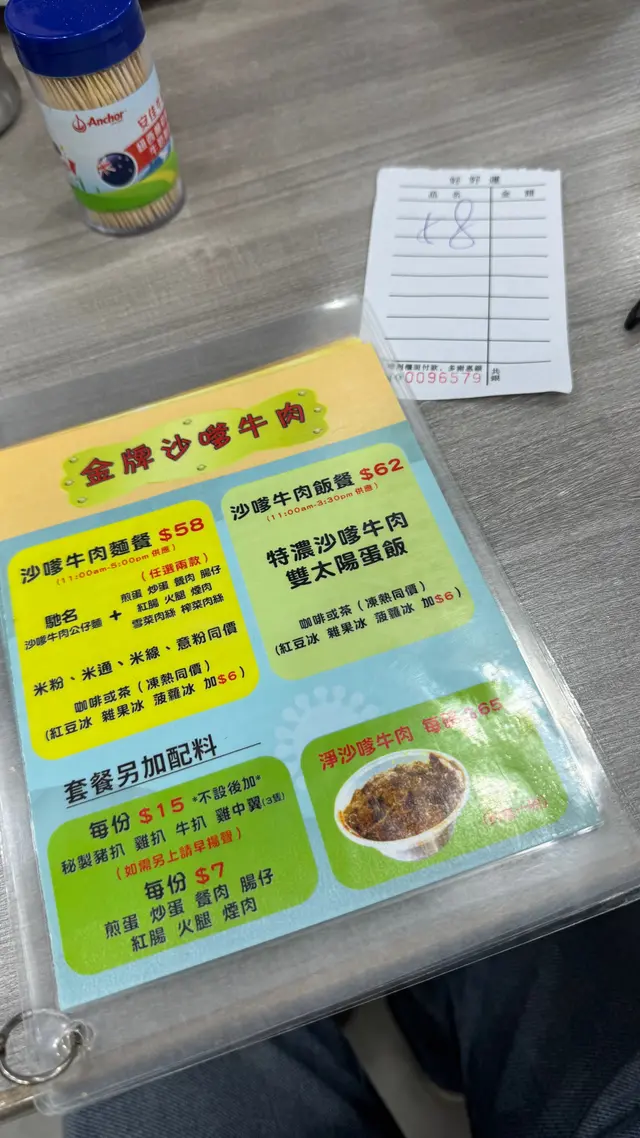 Anchor
好好運
品名 金額
x8
0096579
共銀
金牌沙嗲牛肉
沙嗲牛肉麵餐 $58
(11:00am-5:00pm 供應)
馳名
沙嗲牛肉公仔麵
+
(任選兩款)
煎蛋 炒蛋 餐肉 腸仔
紅腸 火腿 煙肉
雪菜肉絲 榨菜肉絲
米粉、米通、米線、意粉同價
咖啡或茶(凍熱同價)
(紅豆冰 雜果冰 菠蘿冰 加$6)
沙嗲牛肉飯餐 $62
(11:00am-3:30pm 供應)
特濃沙嗲牛肉
雙太陽蛋飯
咖啡或茶(凍熱同價)
(紅豆冰 雜果冰 菠蘿冰 加$6)
套餐另加配料
每份 $15 *不設後加*
秘製豬扒 雞扒 牛扒 雞中翼(3隻)
(如需另上請早揚聲)
每份 $7
煎蛋 炒蛋 餐肉 腸仔
紅腸 火腿 煙肉
淨沙嗲牛肉 每 $65